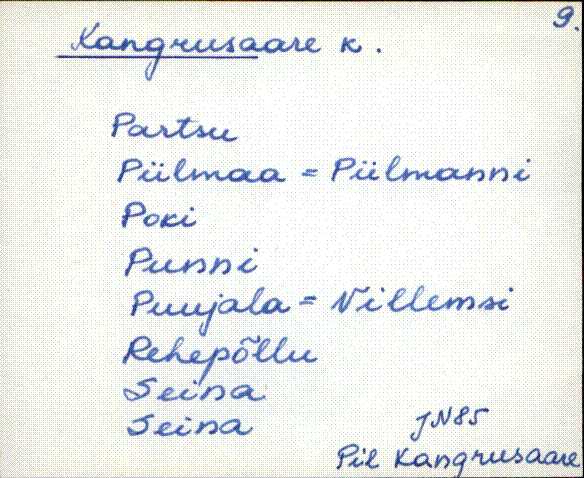 9.
Kangrusaare k.
Partsu
Piilmaa = Piilmanni
Poki
Punni
Puujala = Villemsi
Rehepõllu
Seina
Seina
JN85
Pil Kangrusaare